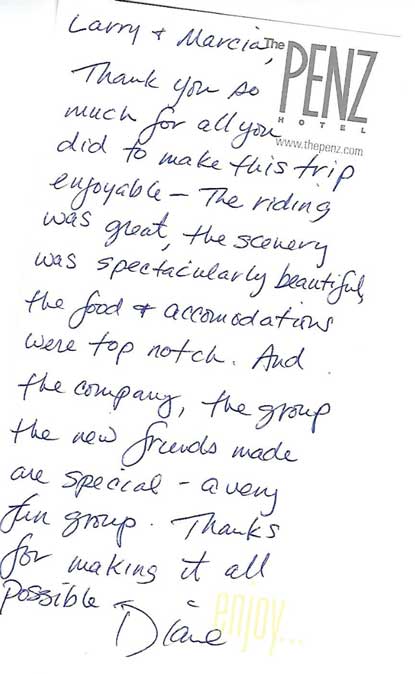 Larry + Marcia,
The
PENZ
HOTEL
www.thepenz.com
Thank you so
much for all you
did to make this trip
enjoyable – The riding
was great, the scenery
was spectacularly beautiful,
the food + accomodations
were top notch. And
the company, the group
the new friends made
are special – a very
fun group. Thanks
for making it all
possible –
Diane
enjoy...